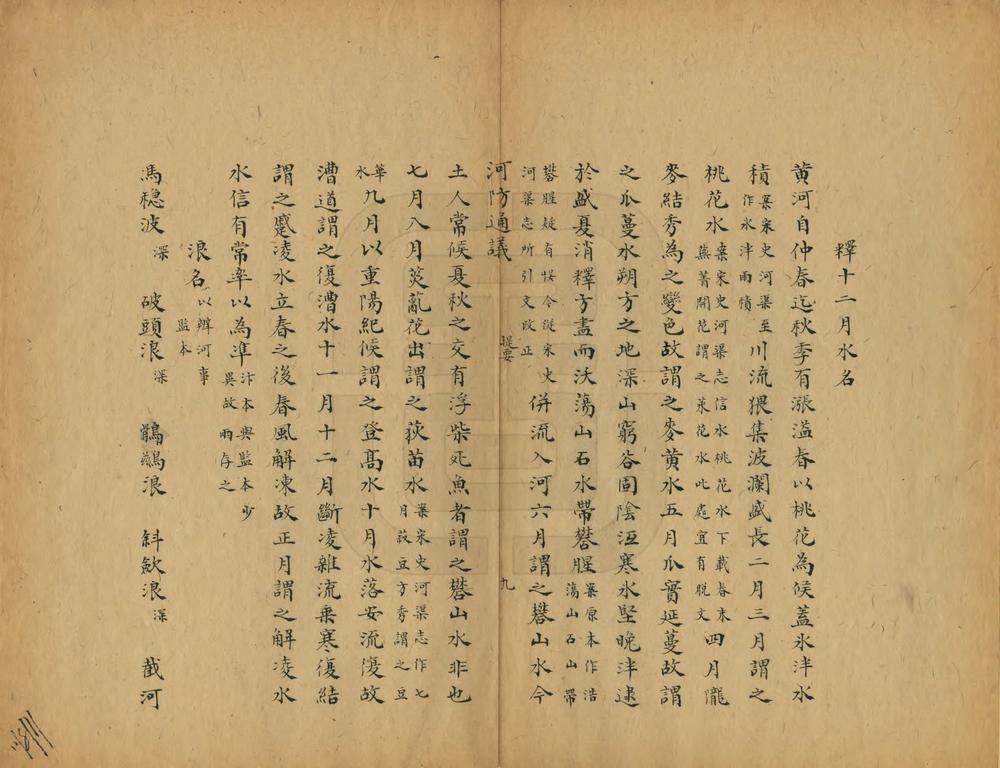 釋十二月水名
黄河自仲春迄秋季有漲溢春以桃花為候蓋氷泮水
積案宋史河渠至作水泮雨積川流猥集波瀾盛長二月三月謂之
桃花水案宋史河渠志信水桃花水下載春末蕪菁開花謂之菜花水此處宜有脱文四月隴
麥結秀為之變色故謂之麥黄水五月瓜實延蔓故謂
之瓜蔓水朔方之地深山窮谷固陰沍寒氷堅晚泮逮
於盛夏消釋方盡而沃蕩山石水帶礬腥案原本作浩蕩山石山帶
礬腥疑有悮今從宋史河渠志所引文改正併流入河六月謂之礬山水今
河防通議 提要 九
土人常候夏秋之交有浮柴死魚者謂之礬山水非也
七月八月菼薍花出謂之荻苗水案宋史河渠志作七月菽豆方秀謂之豆
華水九月以重陽紀候謂之登髙水十月水落安流復故
漕道謂之復漕水十一月十二月斷凌雜流乗寒復結
謂之蹙凌水立春之後春風解凍故正月謂之解凌水
水信有常率以為凖汴本與監本少異故兩存之
浪名以辨河事監本
馮穏波深 破頭浪深 鶻鸊浪 斜歘浪深 截河